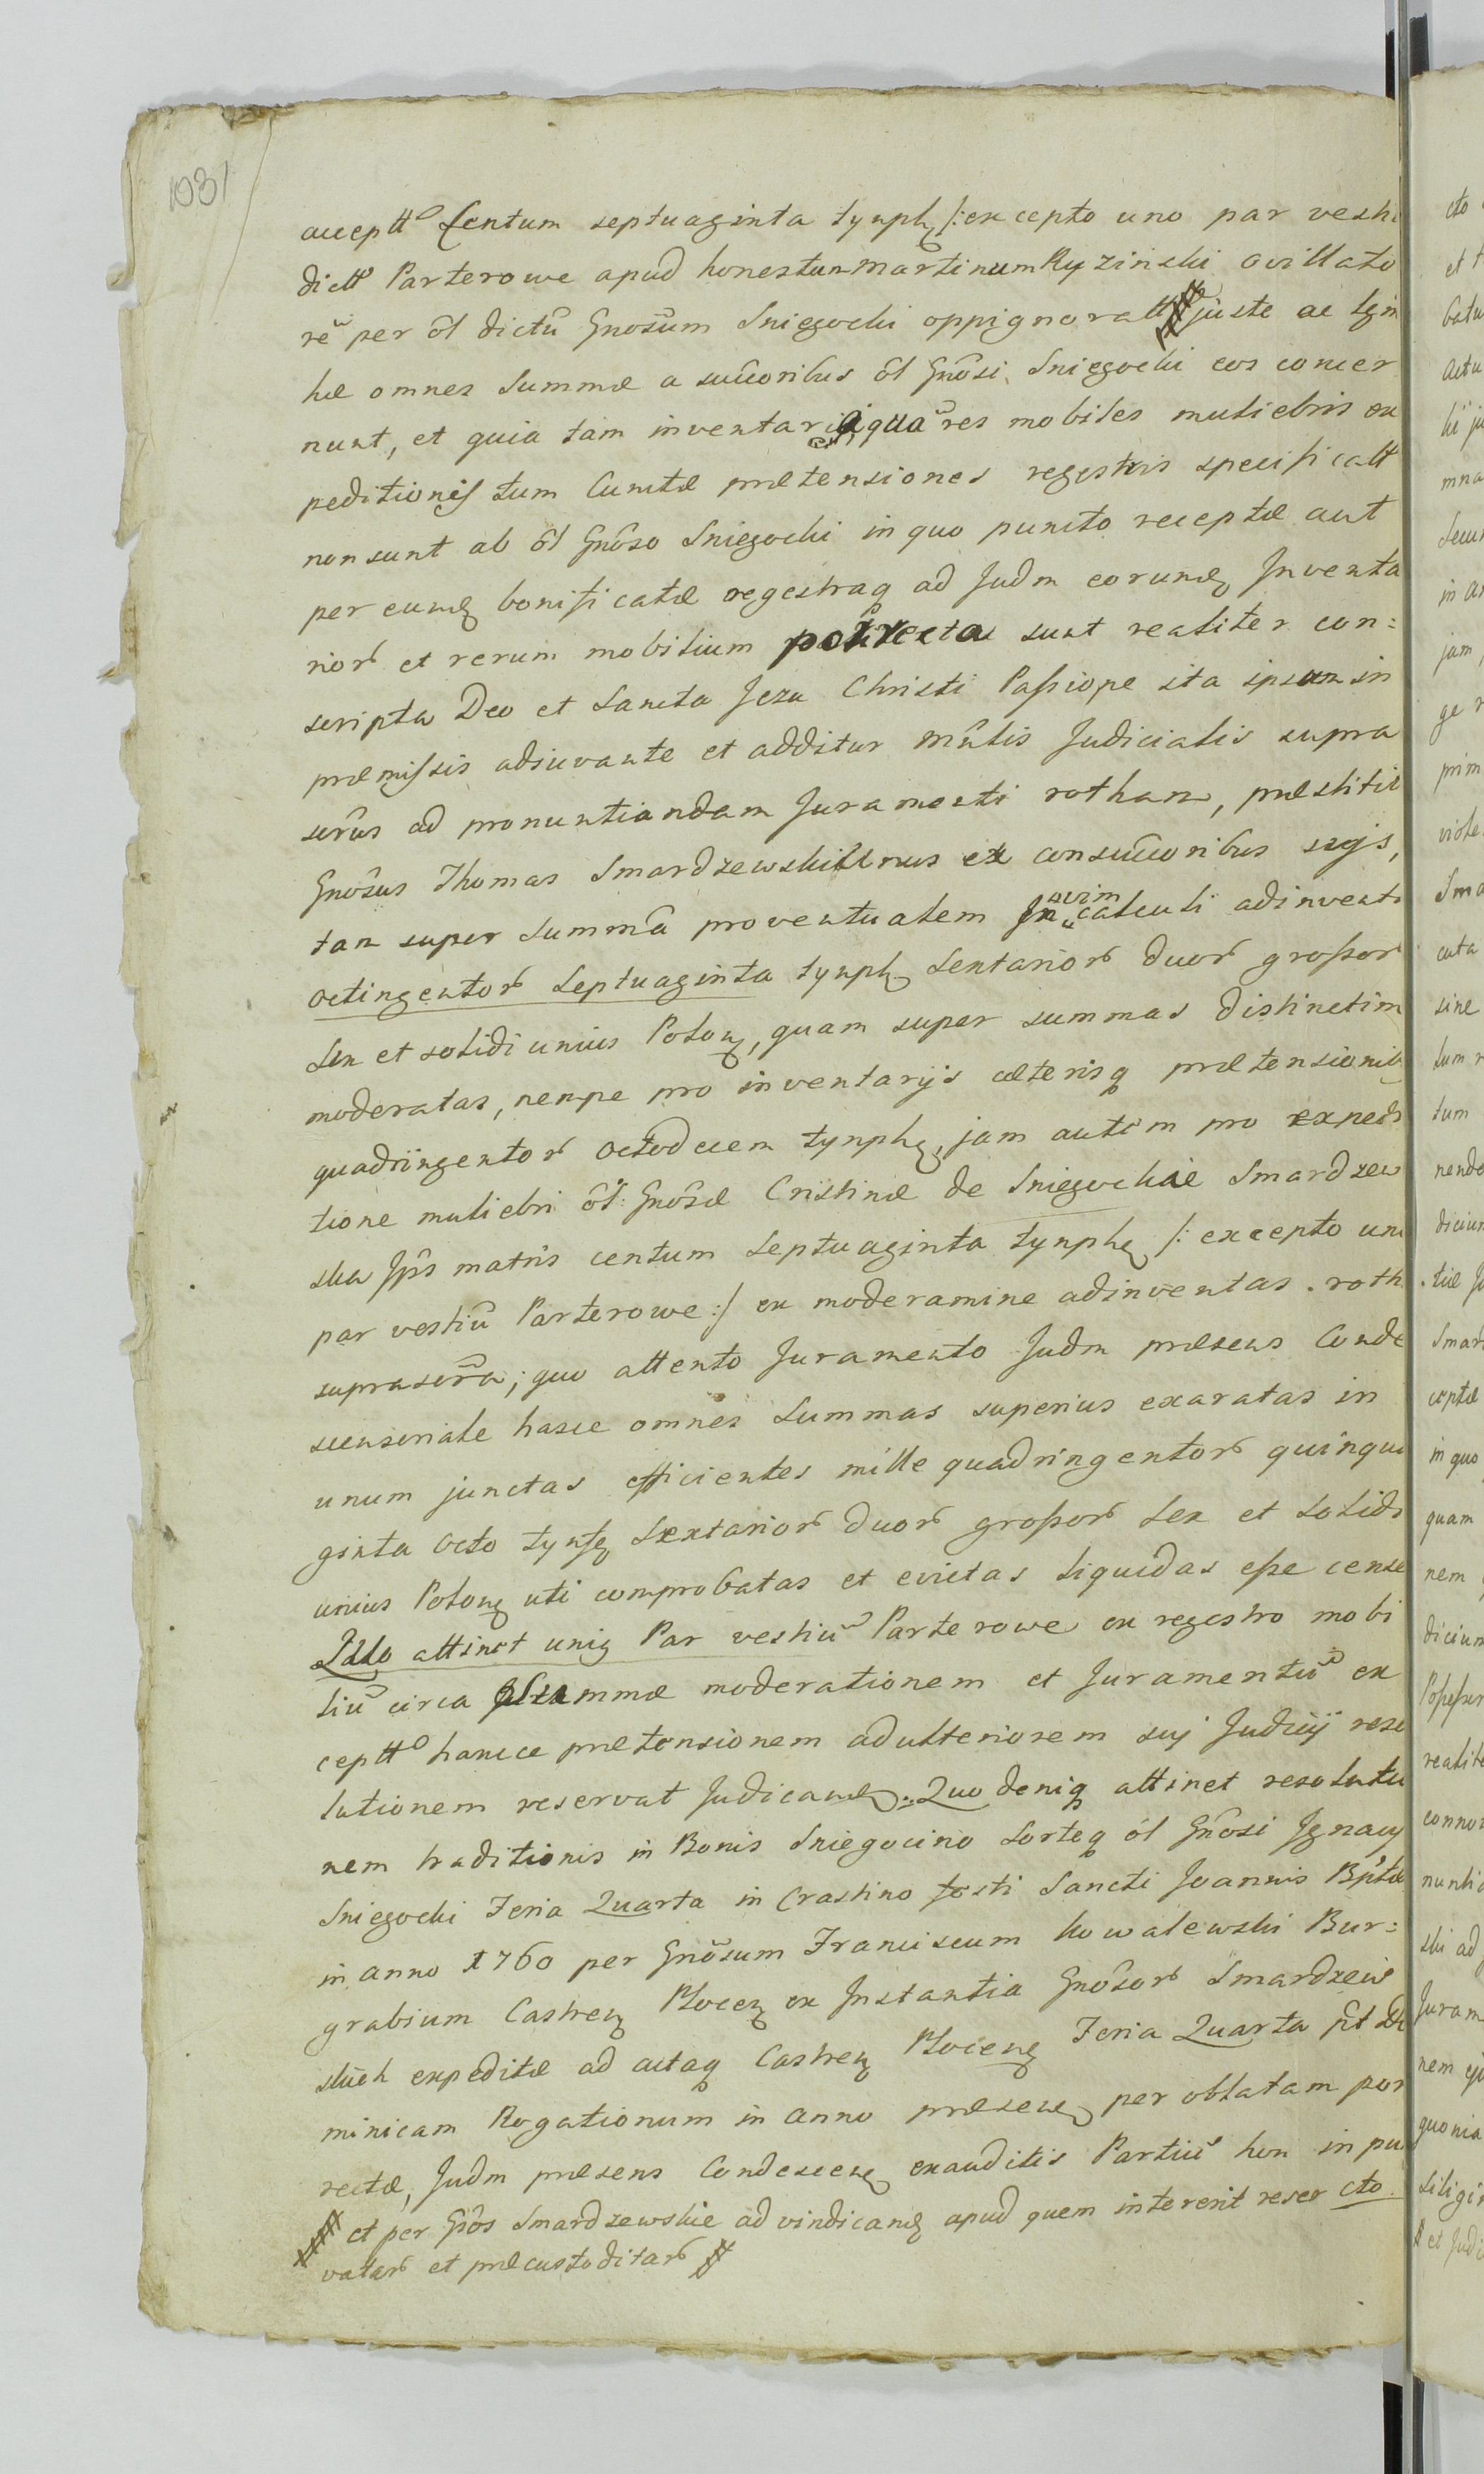 1031
accepttō Centum septuaginta tynph /: excepto uno par vesti
dictt Parterowe apud honestum Martinum Ryzinski avillato
rē per ol dictū Gnosūm Sniegocki oppignoratt juste ac lgm
hæ omnes summæ a succoribus ol Gnōsi Sniegocki eos concer
nunt, et quia tam inventaria quā res mobiles muliebris ex
peditionis tum Cunctæ prætensiones regestris specificatt
non sunt ab ol Gnōso Sniegocki in quo puncto receptæ aut
per eumq bonificatæ regestraq ad Judm eorumq Inventa
rior et rerum mobilium porrecta sunt realiter con:
scripta Deo et Sancta Jezu Christi Passione ita ipsum in
præmissis adiuvante et additur Mnlis Judicialis supra
scrus ad pronuntiandam Juramenti rotham, præstitit
Gnōsus Thomas Smardzewski unus ex consuccoribus sujs,
tam super summā proventualem vim calculi adinvent
octingentor septuaginta tynph sextarior duor grossor
sex et solidi unius Polon, quam super summas distinctim
moderatas, nempe pro inventarijs cæterisq prætensionib
quadringentor octodecem tynph, jam autem pro expedi
tione muliebri ol: Gnōsæ Cristinæ de Sniegockie Smardzew
ska Jps matris centum septuaginta tynph /: excepto uno
par vestiū Parterowe :/ ex moderamine adinventas . roth
suprascra; quo attento Juramento Judm præsens Conde
scensoriale hasce omnes summas superius exaratas in
unum junctas efficientes mille quadringentor quinqua
ginta octo tynf sextarior duor grossor sex et solidi
unius Polon uti comprobatas et evictas liquidas esse cense
Quo attinet uniq Par vestiū Parterowe ex regestro mobi
liū circa summæ moderationem et Juramentū ex
ceptto hancce prætensionem ad ulteriorem suj Judicij reso
lutionem reservat Judicam. Quo deniq attinet resolutio
nem traditionis in Bonis Sniegocino Sorteq ol Gnōsi Ignacij
Sniegocki Feria Quarta in Crastino festi Sancti Joannis Bptæ
in anno 1760 per Gnōsum Franciscum Kowalewski Bur:
grabium Castren Plocen ex Instantia Gnōsor Smardzew
skich expeditæ ad actaq Castren Plocen Feria Quarta pt Do
minicam Rogationum in anno præsen per oblatam por
rectæ, Judm præsens Condescen exauditis Partiū hon in pu
et per Gōs Smardzewskie ad vindicand apud quem intererit reser cto.
vatar et præcustoditar